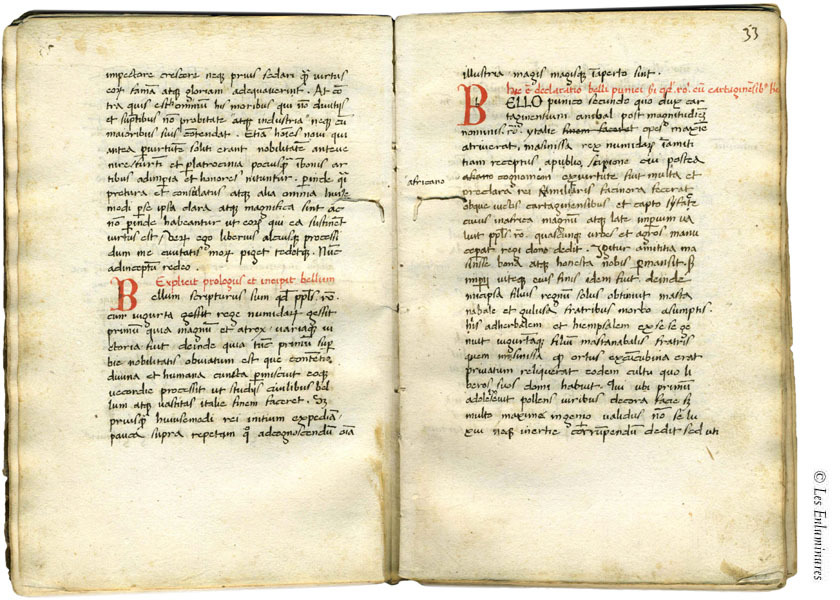 impectore crescere neq prius sedari q virtus
eor famã atq gloriam adequaverint. At cõ
tra quis est omniũ his moribus qui nõ divitijs
et sũptibus nõ probitate atq industria neq cũ
maioribus suis cõtendat. Etiã hões novi qui
antea p virtutẽ soliti erant nobilitatẽ anteve
nire furtĩ et p latrocinia potiusq bonis ar
tibus ad imperia et honores nituntur. perinde q
pretura et cõsulatus atq alia omnia huiusce
modi p se ipsa clara atq magnifica sint ac
nõ perinde habeantur ut eorũ qui ea sustinent
virtus est. Verũ ego liberius altiusq processi
dum me civitatis morũ piget tedetq. Nũc
ad inceptũ redeo.
Explicit prologus et incipit bellum
Bellum scripturus sum qd ppls ro.
cum iugurta gessit rege numidarũ gessit
primũ quia magnũ et atrox variaq vi
ctoria fuit deinde quia tũc primũ super
bie nobilitatis obviatum est que contentio
divina et humana cuncta permiscuit eoq
vecordie processit ut studijs civilibus bel
lum atq vastitas italie finem faceret. Sz
priusq huiuscemodi rei initium expediã.
pauca supra repetam quo ad cognoscendũ oĩa
33
illustria magis magisq in aperto sint.
Hic ẽ declaratio belli punici
BELLO punico secundo quo dux car
taginensium anibal post magnitudiẽ
nominis ro. ytalie finem faceret opes maxĩe
atriverat, masinissa rex numidarũ in amiti
tiam receptus a publio scipione cui postea
africano
asiano cognomen ex virtute fuit multa et
preclara rei militaris facinora fecerat
obque victis cartaginensibus et capto syface
cuius in africa magnũ atq late imperium va
luit ppls ro. quascunq urbes et agros manu
ceperat regi dono dedit. Igitur amititia ma
sinisse bona atq honesta nobis permansit. Sz
imperij viteq eius finis idem fuit. deinde
micipsa filius regnũ solus obtinuit masta
nabale et gulussa fratribus morbo asumptis.
his adherbalem et hiempsalem ex se se ge
nuit iugurtãq filiũ mastanabalis fratris
quem masinissa q ortus ex cõcubina erat
privatum reliquerat eodem cultu quo li
beros suos domi habuit. Qui ubi primũ
adolevit pollens viribus decora facie sz
multo maxime ingenio validus nõ se lu
xui neq inertie corrumpendũ dedit sed uti
© Les Enluminures